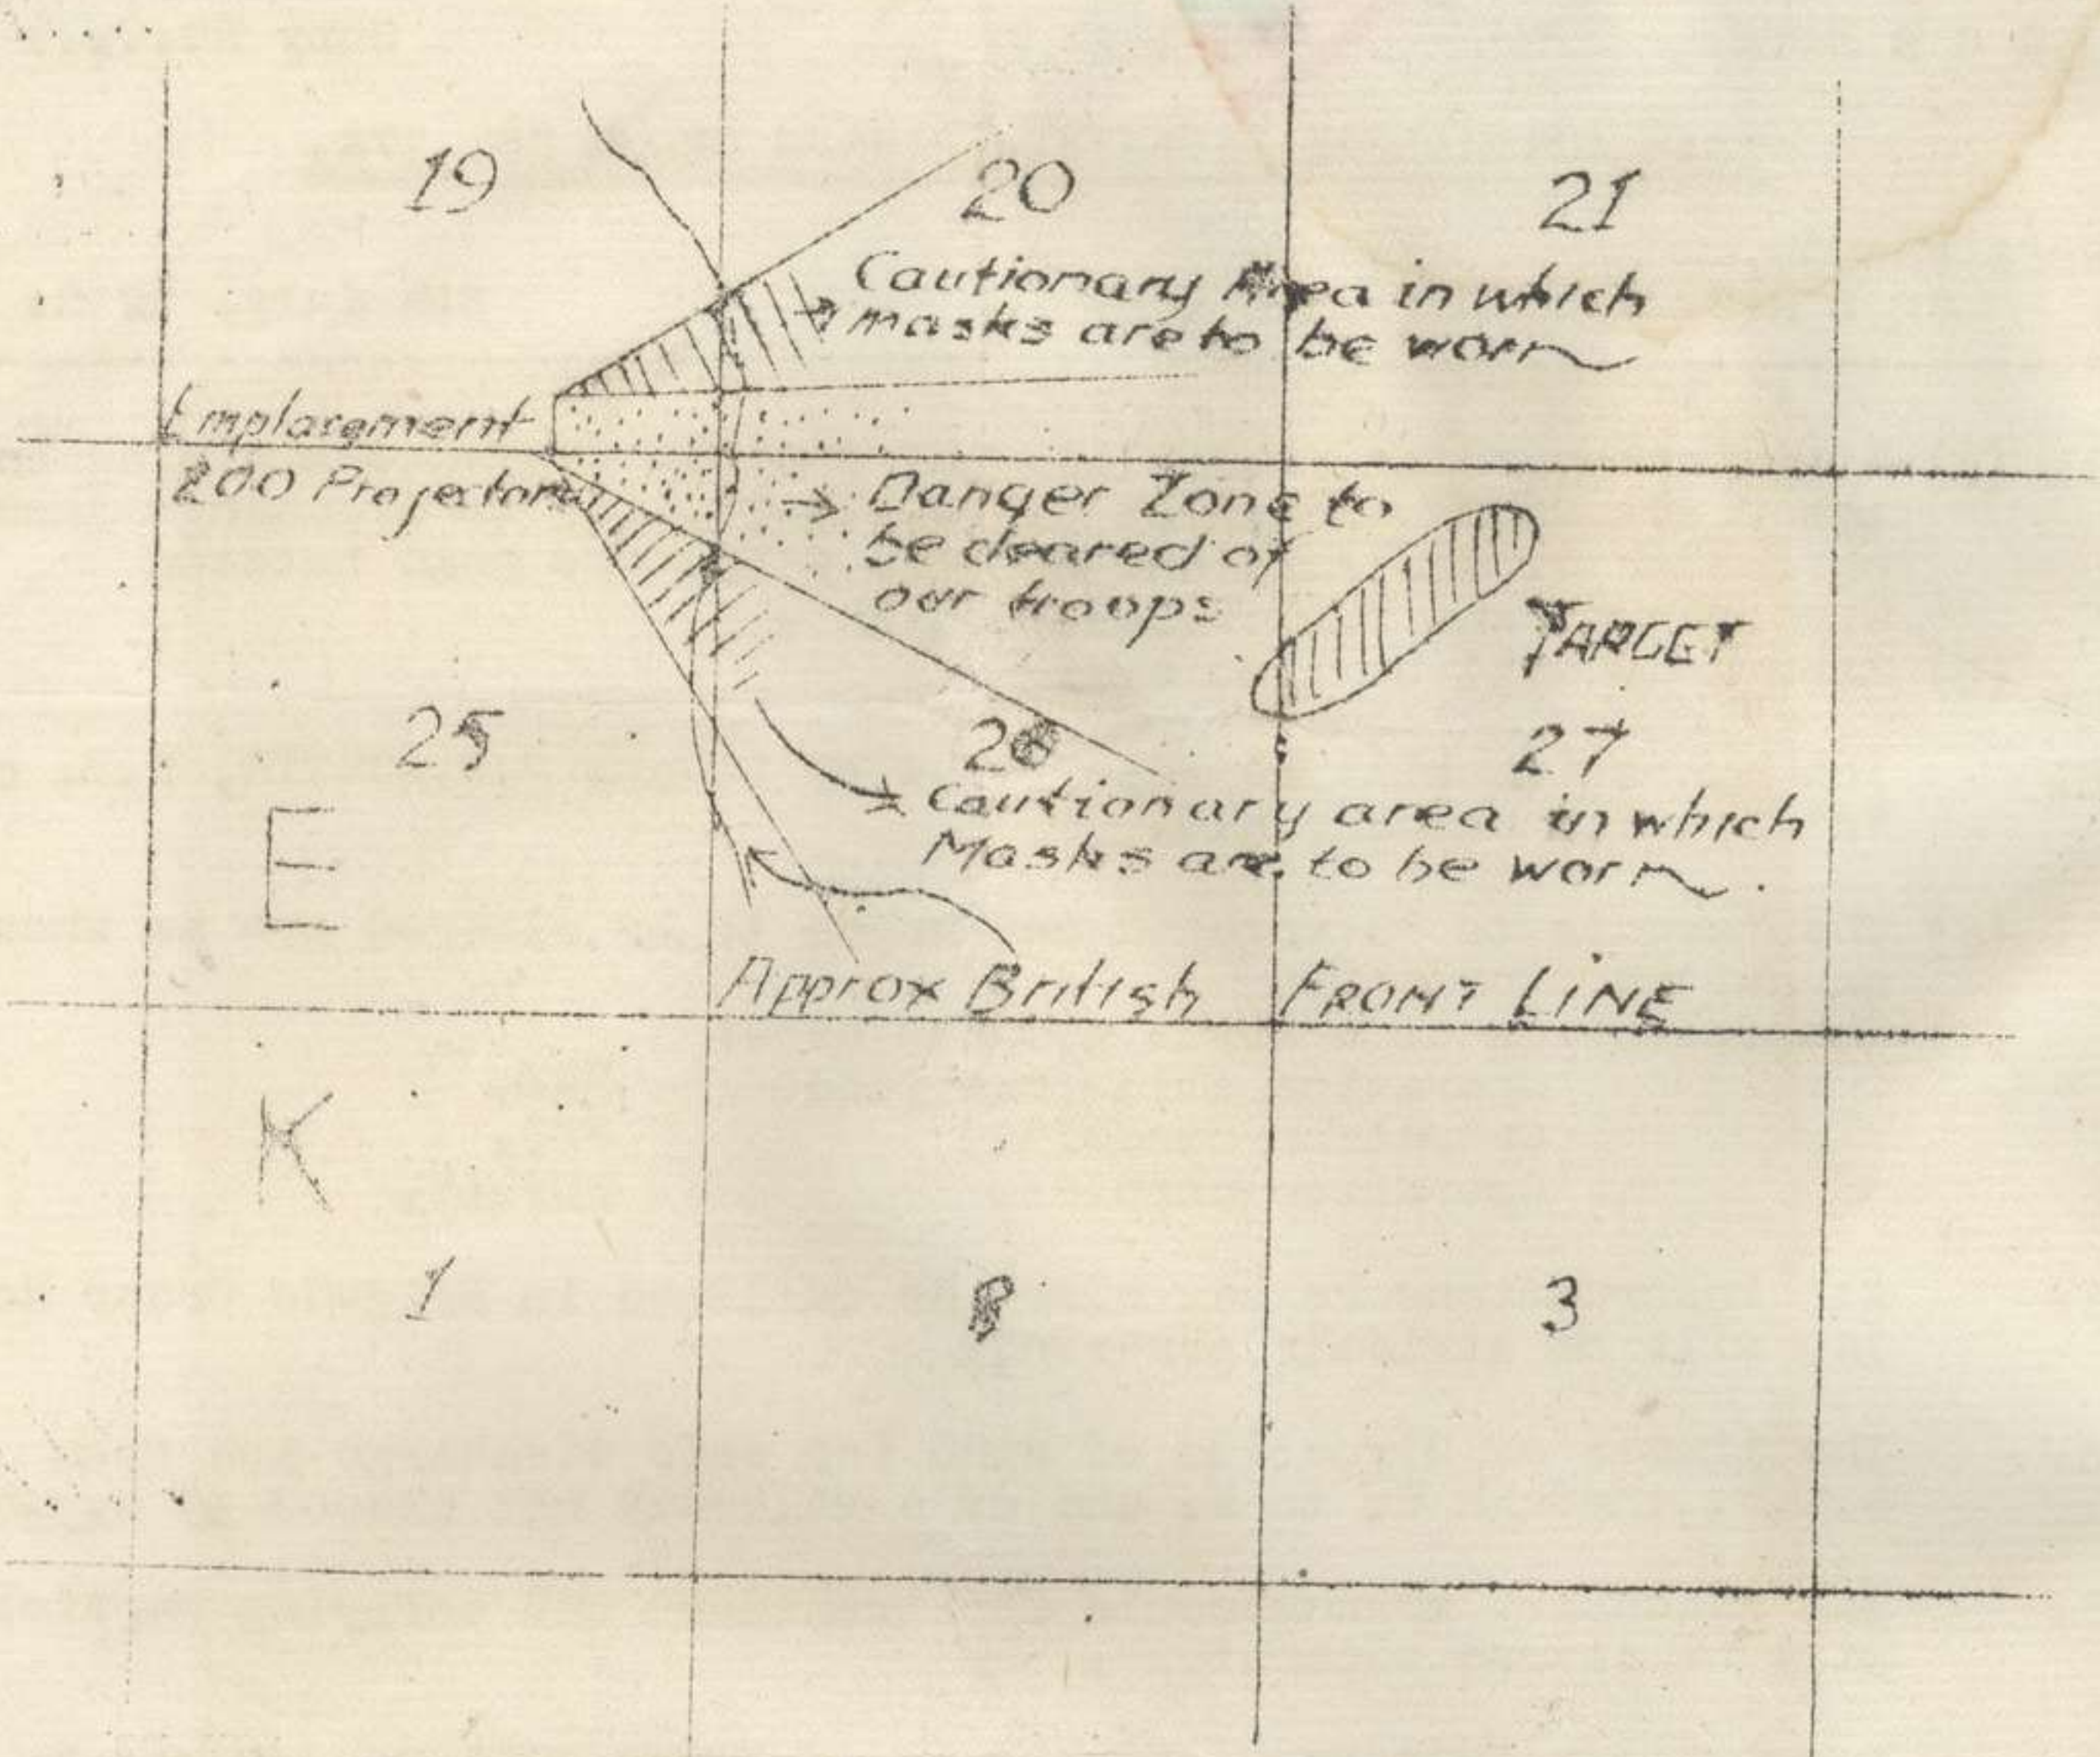 19
20
21
Cautionary Area in which
masks are to be worn
Emplacement
200 Projectors
Danger Zone to
be cleared of
our troops
TARGET
25
26
27
Cautionary area in which
Masks are to be worn.
E
Approx British FRONT LINE
K
1
3